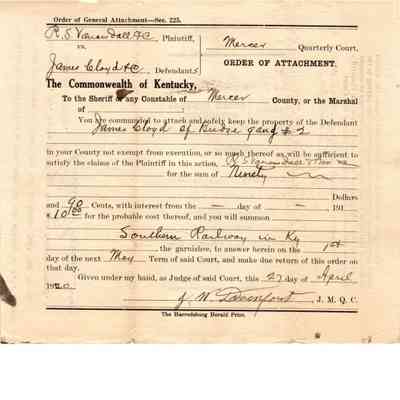 Order of General Attachment—Sec. 225.
R. S. Vanarsdall &C Plaintiff,
vs.
James Cloyd &C Defendants
Mercer Quarterly Court.
ORDER OF ATTACHMENT.
The Commonwealth of Kentucky,
To the Sheriff or any Constable of Mercer County, or the Marshal
of
You are commanded to attach and safely keep the property of the Defendant
James Cloyd of Bridge gang # 2
in your County not exempt from execution, or so much thereof as will be sufficient to
satisfy the claims of the Plaintiff in this action, R. S. Vanarsdall
for the sum of Ninety
Dollars
and 90 Cents, with interest from the — day of — 191
$10.00 for the probable cost thereof, and you will summon
Southern Railway in Ky
, the garnishee, to answer herein on the 1st
day of the next May Term of said Court, and make due return of this order on
that day.
Given under my hand, as Judge of said Court, this 27 day of April
1920
J. W. Davenport, J. M. Q. C.
The Harrodsburg Herald Print.